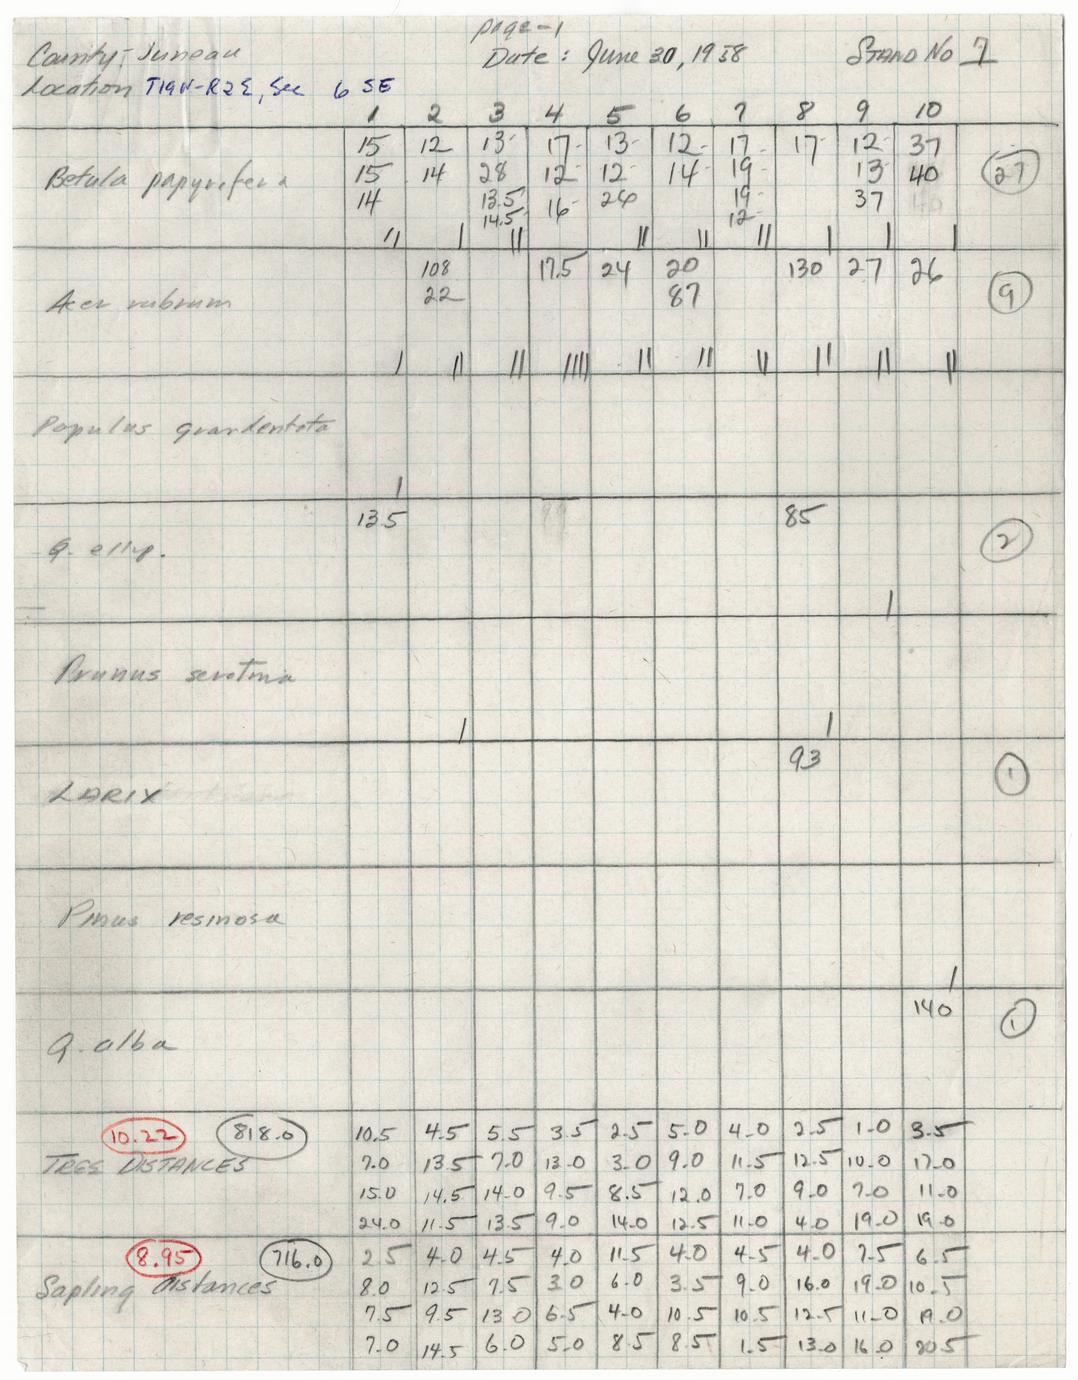 page-1
County: Juneau Date: June 30, 1958 STAND NO 7
Location T19N-R2E, Sec 6 SE
1 2 3 4 5 6 7 8 9 10
15 12 13 17 13 12 17 17 12 37
Betula papyrifera 15 14 28 12 12 14 19 13 40 27
14 13.5 16 26 19 37
14.5 12
// / // // // // / / /
108 17.5 24 20 130 27 26
Acer rubrum 22 87 9
/ // // //// // // // // // //
Populus grandentata
/
135 85
Q. ellip. 2
/
Prunus serotina
/ /
93
LARIX 1
Pinus resinosa
/
140
Q. alba 1
10.22 818.0 10.5 4.5 5.5 3.5 2.5 5.0 4.0 2.5 1.0 3.5
TREE DISTANCES 7.0 13.5 7.0 13.0 3.0 9.0 11.5 12.5 10.0 17.0
15.0 14.5 14.0 9.5 8.5 12.0 7.0 9.0 7.0 11.0
24.0 11.5 13.5 9.0 14.0 12.5 11.0 4.0 19.0 19.0
8.95 716.0 2.5 4.0 4.5 4.0 11.5 4.0 4.5 4.0 7.5 6.5
Sapling distances 8.0 12.5 7.5 3.0 6.0 3.5 9.0 16.0 19.0 10.5
7.5 9.5 13.0 6.5 4.0 10.5 10.5 12.5 11.0 19.0
7.0 14.5 6.0 5.0 8.5 8.5 1.5 13.0 16.0 20.5